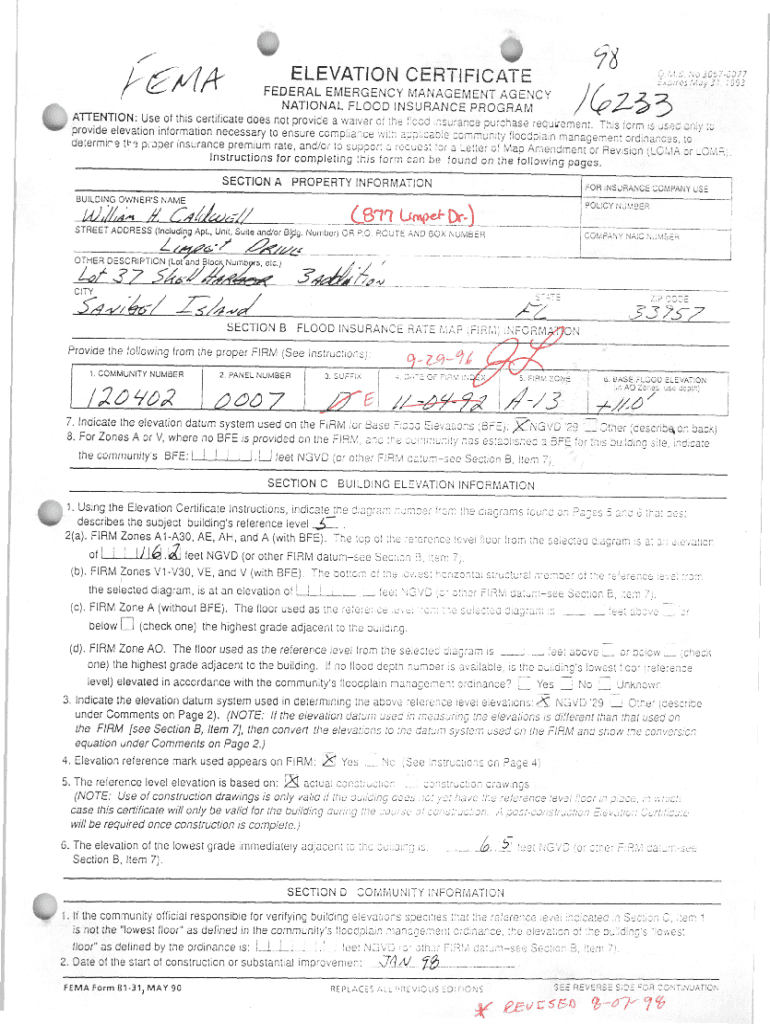 FEMA
98
16233
O.M.B. No.3067-0077
Expires May 31, 1993
ELEVATION CERTIFICATE
FEDERAL EMERGENCY MANAGEMENT AGENCY
NATIONAL FLOOD INSURANCE PROGRAM
ATTENTION: Use of this certificate does not provide a waiver of the flood insurance purchase requirement. This form is used only to
provide elevation information necessary to ensure compliance with applicable community floodplain management ordinances, to
determine the proper insurance premium rate, and/or to support a request for a Letter of Map Amendment or Revision (LOMA or LOMR).
Instructions for completing this form can be found on the following pages.
SECTION A PROPERTY INFORMATION
FOR INSURANCE COMPANY USE
BUILDING OWNER'S NAME
POLICY NUMBER
William H. Caldwell (877 Limpet Dr.)
STREET ADDRESS (Including Apt., Unit, Suite and/or Bldg. Number) OR P.O. ROUTE AND BOX NUMBER
COMPANY NAIC NUMBER
Limpet Drive
OTHER DESCRIPTION (Lot and Block Numbers, etc.)
Lot 37 Shell Harbor 3 addition
CITY
STATE
ZIP CODE
Sanibel Island FL 33957
SECTION B FLOOD INSURANCE RATE MAP (FIRM) INFORMATION
Provide the following from the proper FIRM (See Instructions):
9-29-96
1. COMMUNITY NUMBER 2. PANEL NUMBER 3. SUFFIX 4. DATE OF FIRM INDEX 5. FIRM ZONE 6. BASE FLOOD ELEVATION
(in AO Zones, use depth)
120402 0007 D E 11-04-92 A-13 +11.0'
7. Indicate the elevation datum system used on the FIRM for Base Flood Elevations (BFE): X NGVD '29 Other (describe on back)
8. For Zones A or V, where no BFE is provided on the FIRM, and the community has established a BFE for this building site, indicate
the community's BFE: feet NGVD (or other FIRM datum–see Section B, Item 7).
SECTION C BUILDING ELEVATION INFORMATION
1. Using the Elevation Certificate Instructions, indicate the diagram number from the diagrams found on Pages 5 and 6 that best
describes the subject building's reference level 5.
2(a). FIRM Zones A1-A30, AE, AH, and A (with BFE). The top of the reference level floor from the selected diagram is at an elevation
of 16.2 feet NGVD (or other FIRM datum–see Section B, Item 7).
(b). FIRM Zones V1-V30, VE, and V (with BFE). The bottom of the lowest horizontal structural member of the reference level from
the selected diagram, is at an elevation of feet NGVD (or other FIRM datum–see Section B, Item 7).
(c). FIRM Zone A (without BFE). The floor used as the reference level from the selected diagram is feet above or
below (check one) the highest grade adjacent to the building.
(d). FIRM Zone AO. The floor used as the reference level from the selected diagram is feet above or below (check
one) the highest grade adjacent to the building. If no flood depth number is available, is the building's lowest floor (reference
level) elevated in accordance with the community's floodplain management ordinance? Yes No Unknown
3. Indicate the elevation datum system used in determining the above reference level elevations: X NGVD '29 Other (describe
under Comments on Page 2). (NOTE: If the elevation datum used in measuring the elevations is different than that used on
the FIRM [see Section B, Item 7], then convert the elevations to the datum system used on the FIRM and show the conversion
equation under Comments on Page 2.)
4. Elevation reference mark used appears on FIRM: X Yes No (See Instructions on Page 4)
5. The reference level elevation is based on: X actual construction construction drawings
(NOTE: Use of construction drawings is only valid if the building does not yet have the reference level floor in place, in which
case this certificate will only be valid for the building during the course of construction. A post-construction Elevation Certificate
will be required once construction is complete.)
6. The elevation of the lowest grade immediately adjacent to the building is: 6.5 feet NGVD (or other FIRM datum–see
Section B, Item 7).
SECTION D COMMUNITY INFORMATION
1. If the community official responsible for verifying building elevations specifies that the reference level indicated in Section C, Item 1
is not the "lowest floor" as defined in the community's floodplain management ordinance, the elevation of the building's "lowest
floor" as defined by the ordinance is: feet NGVD (or other FIRM datum–see Section B, Item 7).
2. Date of the start of construction or substantial improvement JAN 98
FEMA Form 81-31, MAY 90 REPLACES ALL PREVIOUS EDITIONS SEE REVERSE SIDE FOR CONTINUATION
* REVISED 8-07-98